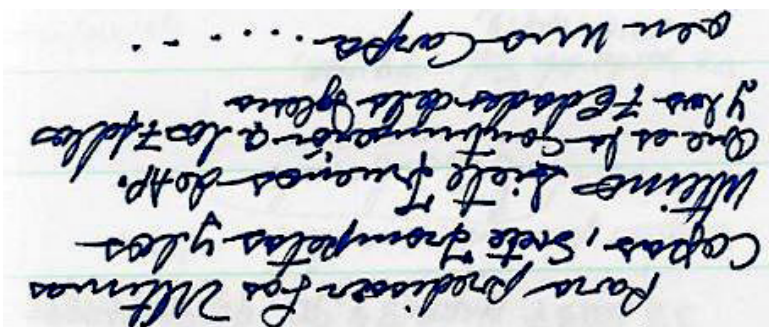 Para predicar las Ultimas
Copas, Siete Trompetas y los
Ultimos Siete Truenos de AP.
Que es la Continuación a los 7 sellos
y las 7 Edades de la Iglesia
en una Carpa . . . . . .